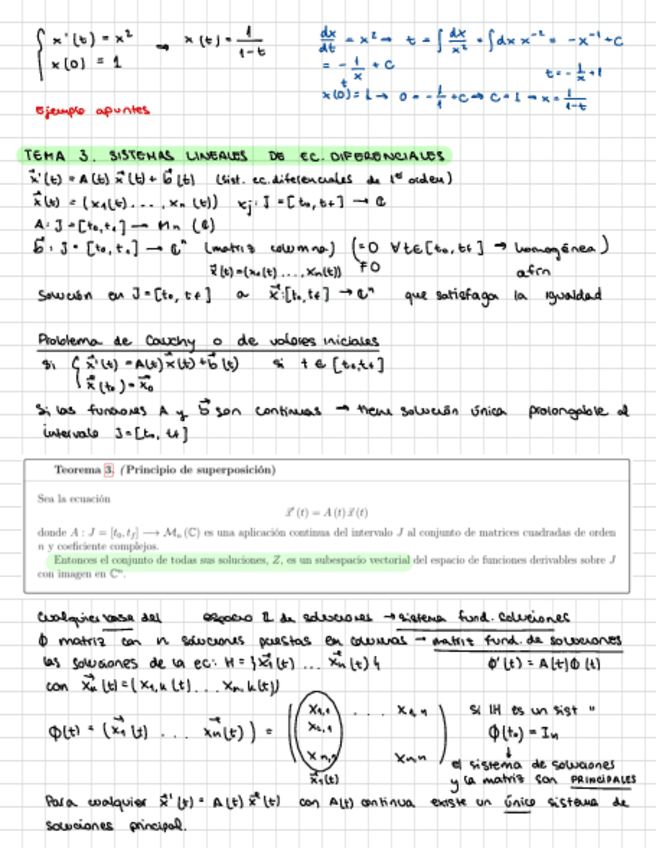 x'(t) = x² → x(t) = 1/(1-t)
x(0) = 1
dx/dt = x² → t = ∫ dx/x² = ∫ dx x⁻² = -x⁻¹ + C
= -1/x + C
t = -1/x + 1
x(0) = 1 → 0 = -1/1 + C → C = 1 → x = 1/(1-t)
Ejemplo apuntes
TEMA 3. SISTEMAS LINEALES DE EC. DIFERENCIALES
x⃗'(t) = A(t) x⃗(t) + b⃗(t) (sist. ec. diferenciales de 1er orden)
x⃗(t) = (x₁(t)..., xₙ(t)) xⱼ: J = [t₀, t_f] → ℂ
A: J = [t₀, t_f] → Mₙ(ℂ)
b⃗: J = [t₀, t_f] → ℂⁿ (matriz columna) (=0 ∀t∈[t₀, t_f] → homogénea)
≠0 afín
Solución en J = [t₀, t_f] a x⃗: [t₀, t_f] → ℂⁿ que satisfaga la igualdad
Problema de Cauchy o de valores iniciales
Si { x⃗'(t) = A(t) x⃗(t) + b⃗(t) si t ∈ [t₀, t_f]
x⃗(t₀) = x⃗₀
Si las funciones A y b⃗ son continuas → tiene solución única prolongable al
intervalo J = [t₀, t_f]
Teorema 3. (Principio de superposición)
Sea la ecuación
x⃗'(t) = A(t) x⃗(t)
donde A : J = [t₀, t_f] ⟶ Mₙ(ℂ) es una aplicación continua del intervalo J al conjunto de matrices cuadradas de orden
n y coeficiente complejos.
Entonces el conjunto de todas sus soluciones, Z, es un subespacio vectorial del espacio de funciones derivables sobre J
con imagen en ℂⁿ.
Cualquier base del espacio Z de soluciones → sistema fund. soluciones
Φ matriz con n soluciones puestas en columnas → matriz fund. de soluciones
las soluciones de la ec: H = {x⃗₁(t) ... x⃗ₙ(t)} Φ'(t) = A(t)Φ(t)
con x⃗ₖ(t) = (x₁,ₖ(t)...xₙ,ₖ(t))
Φ(t) = (x⃗₁(t) ... x⃗ₙ(t)) = ( x₁,₁ ... x₁,ₙ
x₂,₁
xₙ,₁ xₙ,ₙ )
x⃗₁(t)
Si H es un sist "
Φ(t₀) = Iₙ
↓
el sistema de soluciones
y la matriz son PRINCIPALES
Para cualquier x⃗'(t) = A(t) x⃗(t) con A(t) continua existe un único sistema de
soluciones principal.